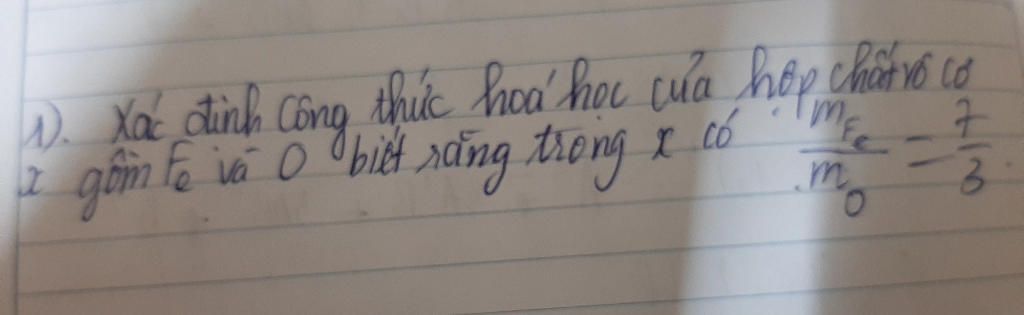 1). Xác định công thức hoá học của hợp chất vô cơ
x gồm Fe và O biết rằng trong x có m_Fe / m_O = 7/3.